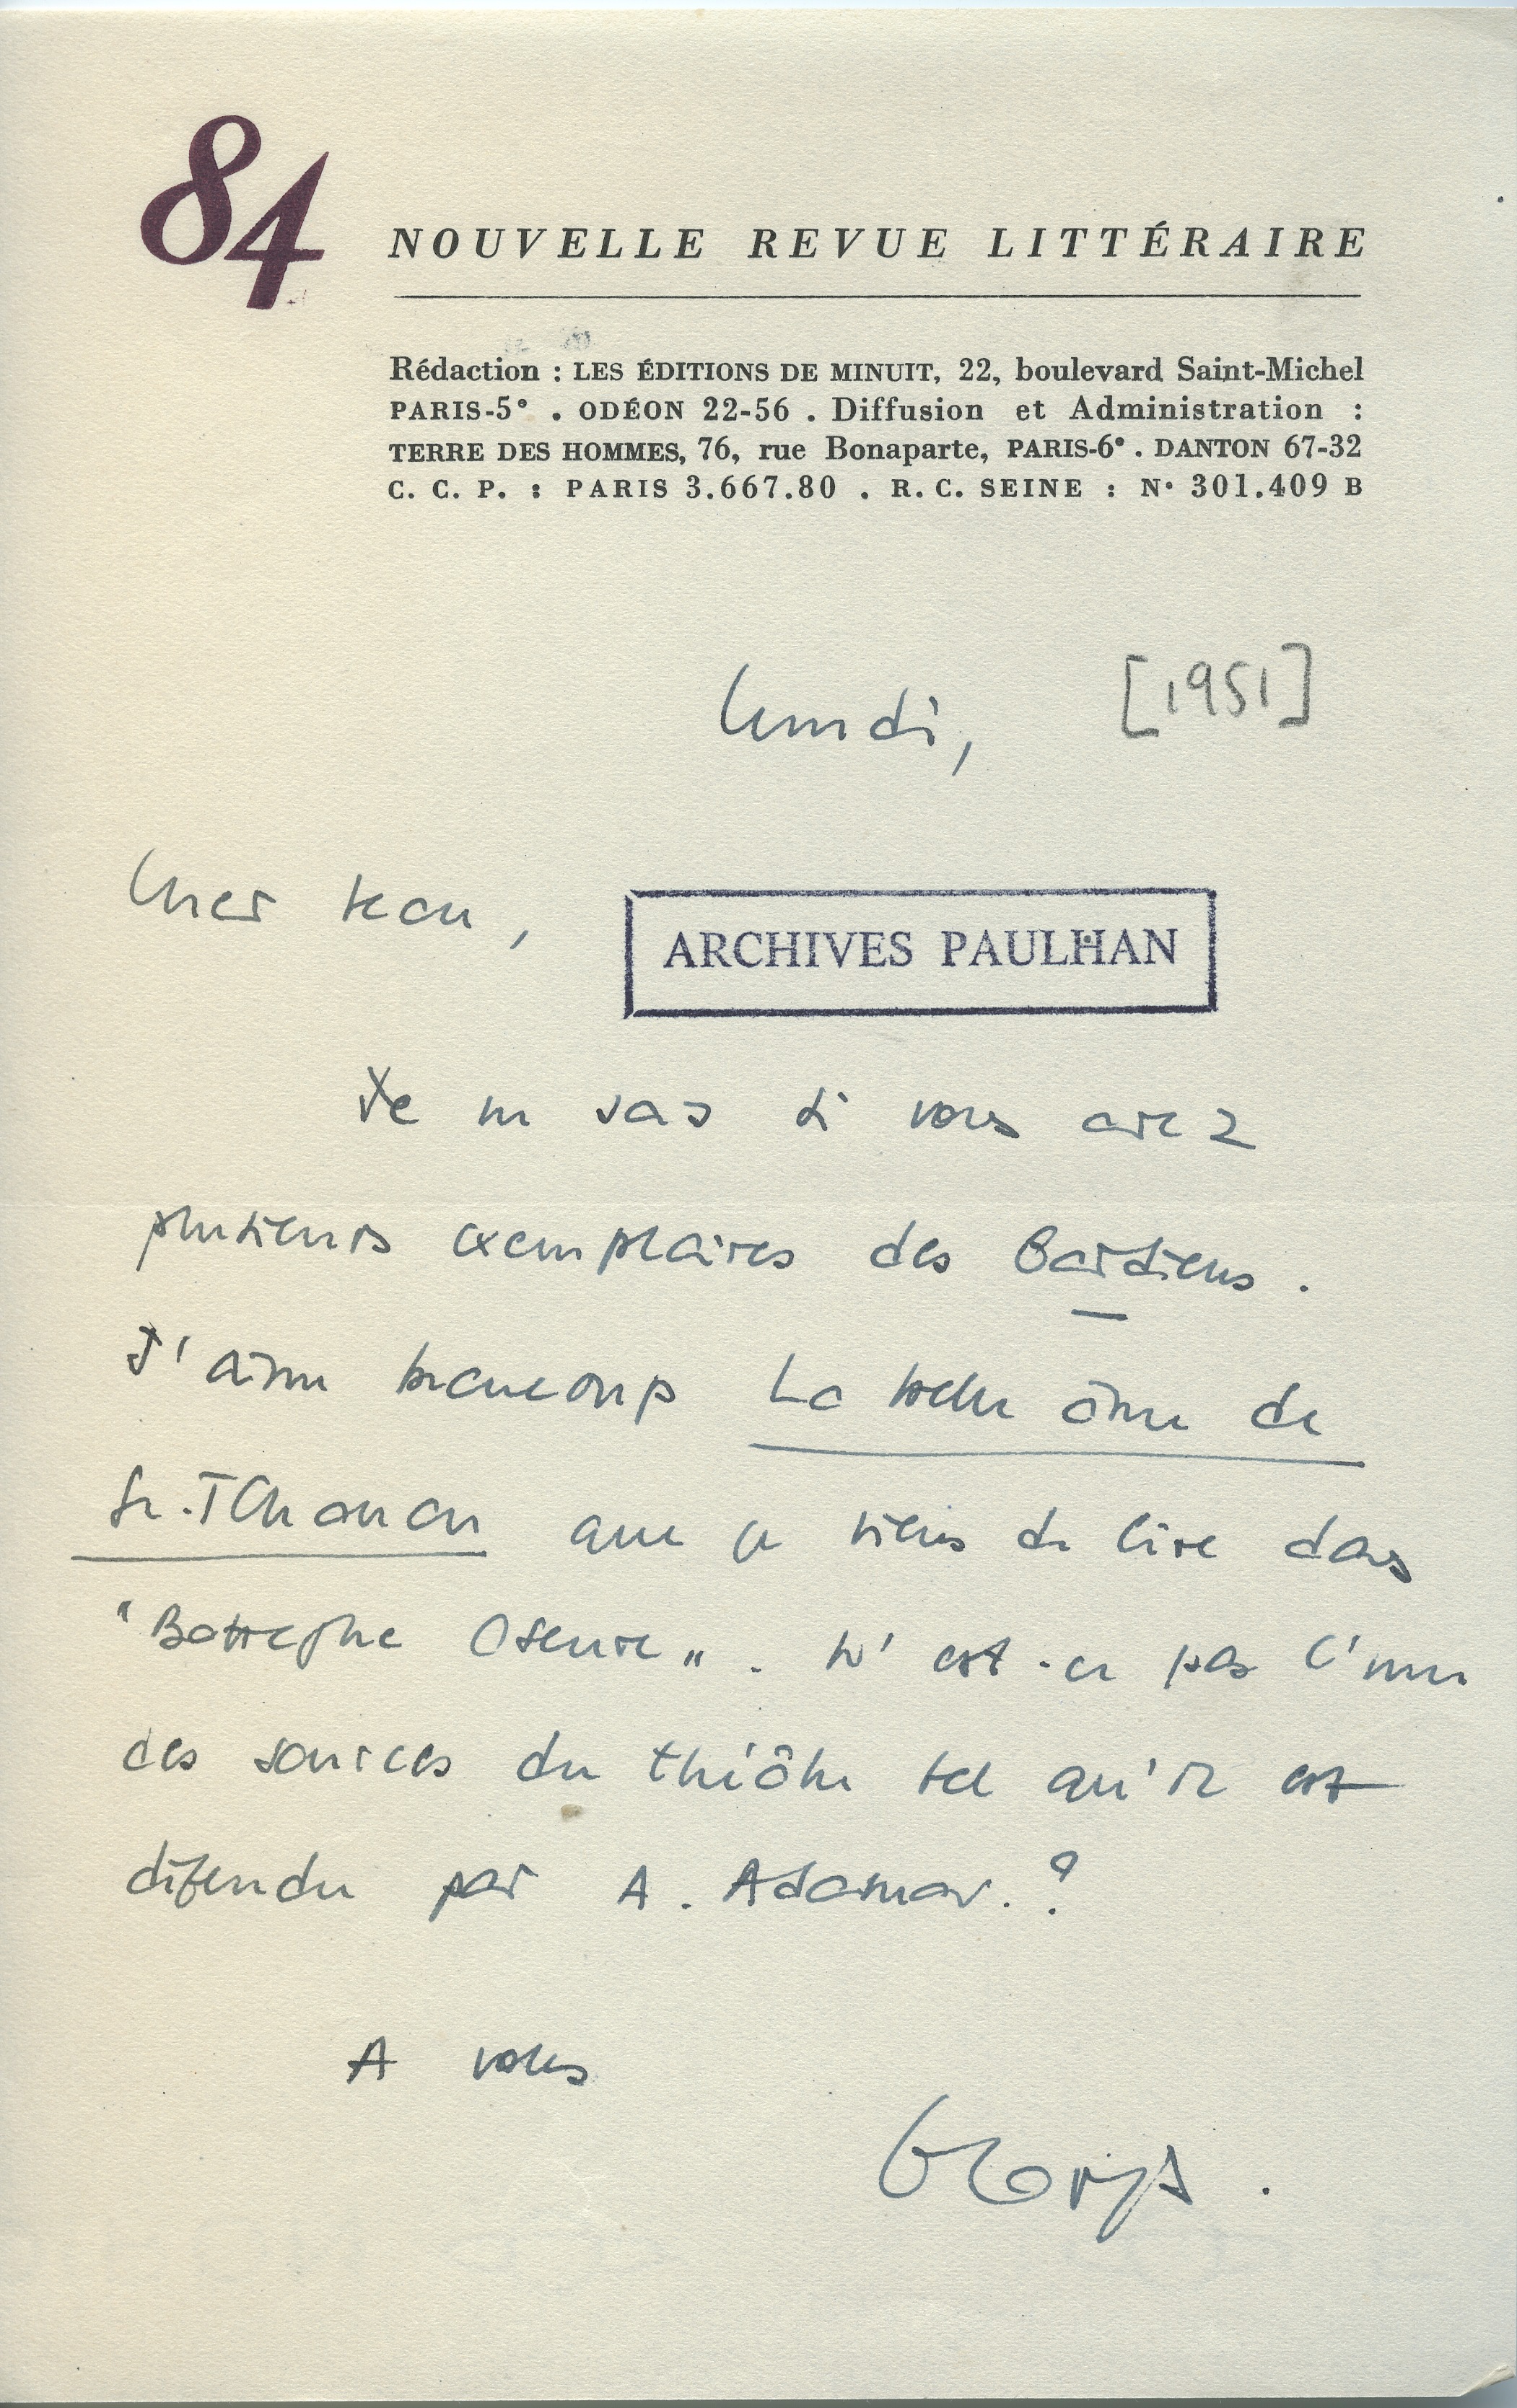 84 NOUVELLE REVUE LITTÉRAIRE
Rédaction : LES ÉDITIONS DE MINUIT, 22, boulevard Saint-Michel
PARIS-5e . ODÉON 22-56 . Diffusion et Administration :
TERRE DES HOMMES, 76, rue Bonaparte, PARIS-6e . DANTON 67-32
C. C. P. : PARIS 3.667.80 . R. C. SEINE : N° 301.409 B
lundi, [1951]
Cher Jean,
ARCHIVES PAULHAN
Je ne sais si vous avez
plusieurs exemplaires des Gardiens.
J'aime beaucoup La belle âme de
Se-Tchouan que je viens de lire dans
"Botteghe Oscure". N'est-ce pas l'une
des sources du théâtre tel qu'il est
défendu par A. Adamov.?
A vous
Georges.